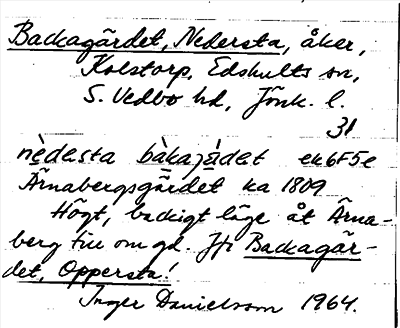 Backagärdet, Nedersta, åker,
Kolstorp, Edshults sn,
S. Vedbo hd, Jönk. l.
31
nèdesta bàkajä̀det ek6F5e
Ärnabergsgärdet ka 1809
Högt, backigt läge åt Ärna-
berg till om gd. Jfr Backagär-
det, Oppersta!
Inger Danielsson 1964.